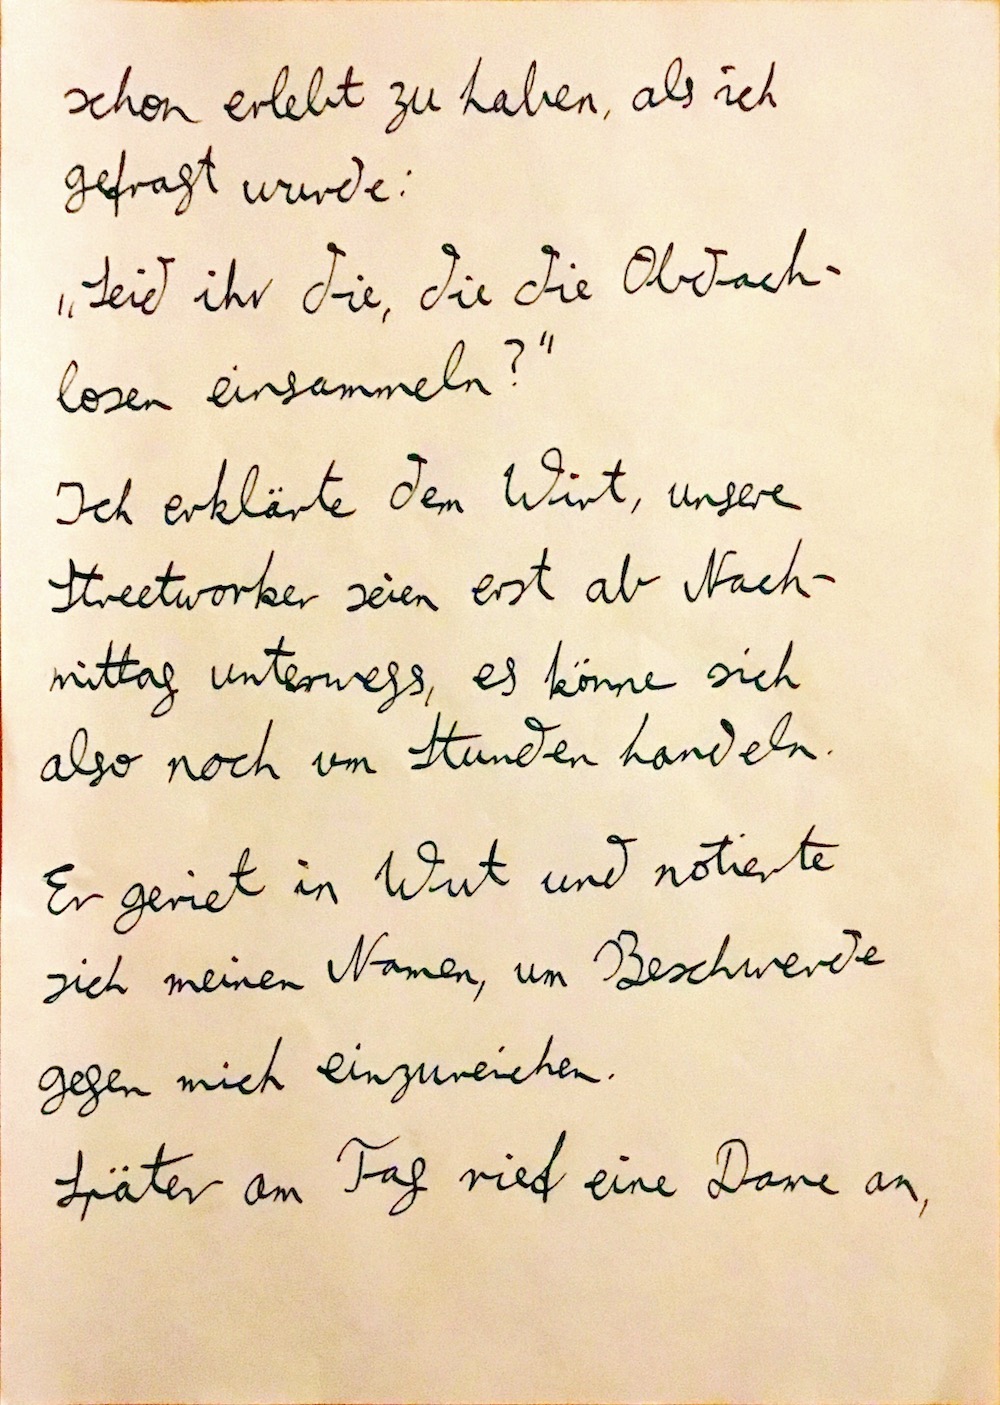 schon erlebt zu haben, als ich
gefragt wurde:
„Seid ihr die, die die Obdach-
losen einsammeln?"
Ich erklärte dem Wirt, unsere
Streetworker seien erst ab Nach-
mittag unterwegs, es könne sich
also noch um Stunden handeln.
Er geriet in Wut und notierte
sich meinen Namen, um Beschwerde
gegen mich einzureichen.
Später am Tag rief eine Dame an,